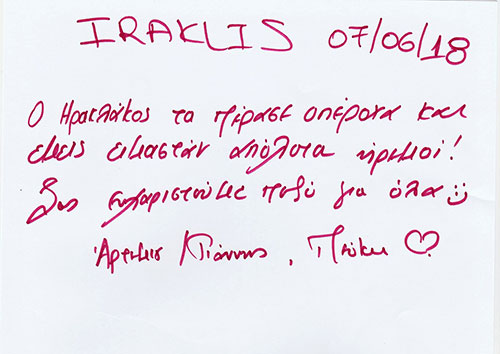 IRAKLIS 07/06/18
Ο Ηρακλάκος τα πέρασε υπέροχα και
εμεις ειμασταν απόλυτα ήρεμοι!
Σας ευχαριστούμε πολύ για όλα
Άρτεμις Γιάννης,